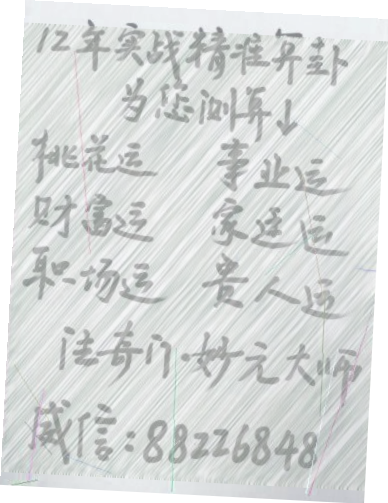 12年实战精准算卦
为您测算↓
桃花运 事业运
财富运 家庭运
职场运 贵人运
法奇门·妙元大师
威信：88226848